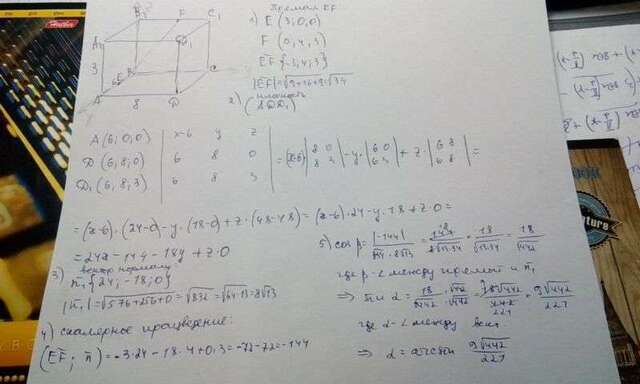 B₁ F C₁
A₁ D₁
3 E B C
A 8 D
Прямая EF
1) E (3; 0; 0)
F (0, 4, 3)
EF {-3; 4; 3}
|EF| = √9+16+9 = √34
2) плоскость
(ADD₁)
A (6; 0; 0) | x-6 y z |
D (6; 8; 0) | 6 8 0 |
D₁ (6, 8, 3) | 6 8 3 |
= (x-6) |8 0 8 3| - y · |6 0 6 3| + z · |6 8 6 8| =
= (x-6) · (24-0) - y · (18-0) + z · (48-48) = (x-6) · 24 - y · 18 + z · 0 =
= 24x - 144 - 18y + z · 0
3) вектор нормали
n₁ {24; -18; 0}
|n₁| = √576+256+0 = √832 = √64·13 = 8√13
4) скалярное произведение:
(EF; n) = -3·24 - 18·4 + 0·3 = -72-72 = -144
5) cos β = |-144| / √34 · 8√13 = 144 / 8√13·34 = 18 / √13·34 = 18 / √442
где β - ∠ между прямой и n₁
⇒ sin α = 18 / √442 · √442 / √442 = 18√442 / 442 = 9√442 / 221
где α - ∠ между
⇒ α = arcsin 9√442 / 221